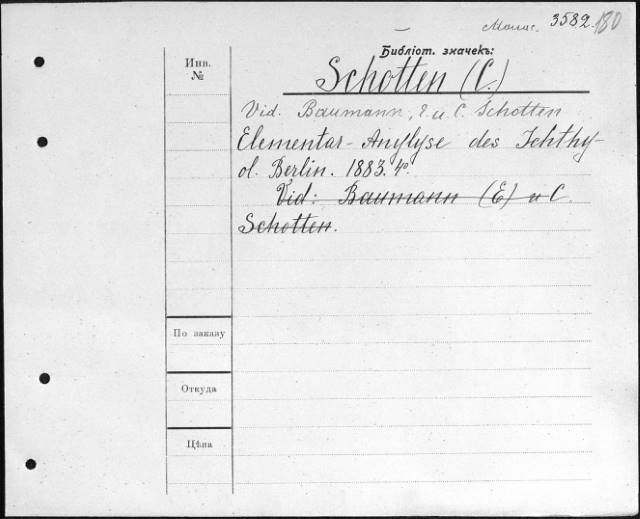 3582. 180
Библіот. значекъ:
Инв.
№
Schotten (C.)
Vid. Baumann, E. u. C. Schotten
Elementar-Anylyse des Ichthy-
ol. Berlin. 1883. 4º.
Vid: Baumann (E) u C.
Schotten.
По заказу
Откуда
Цѣна